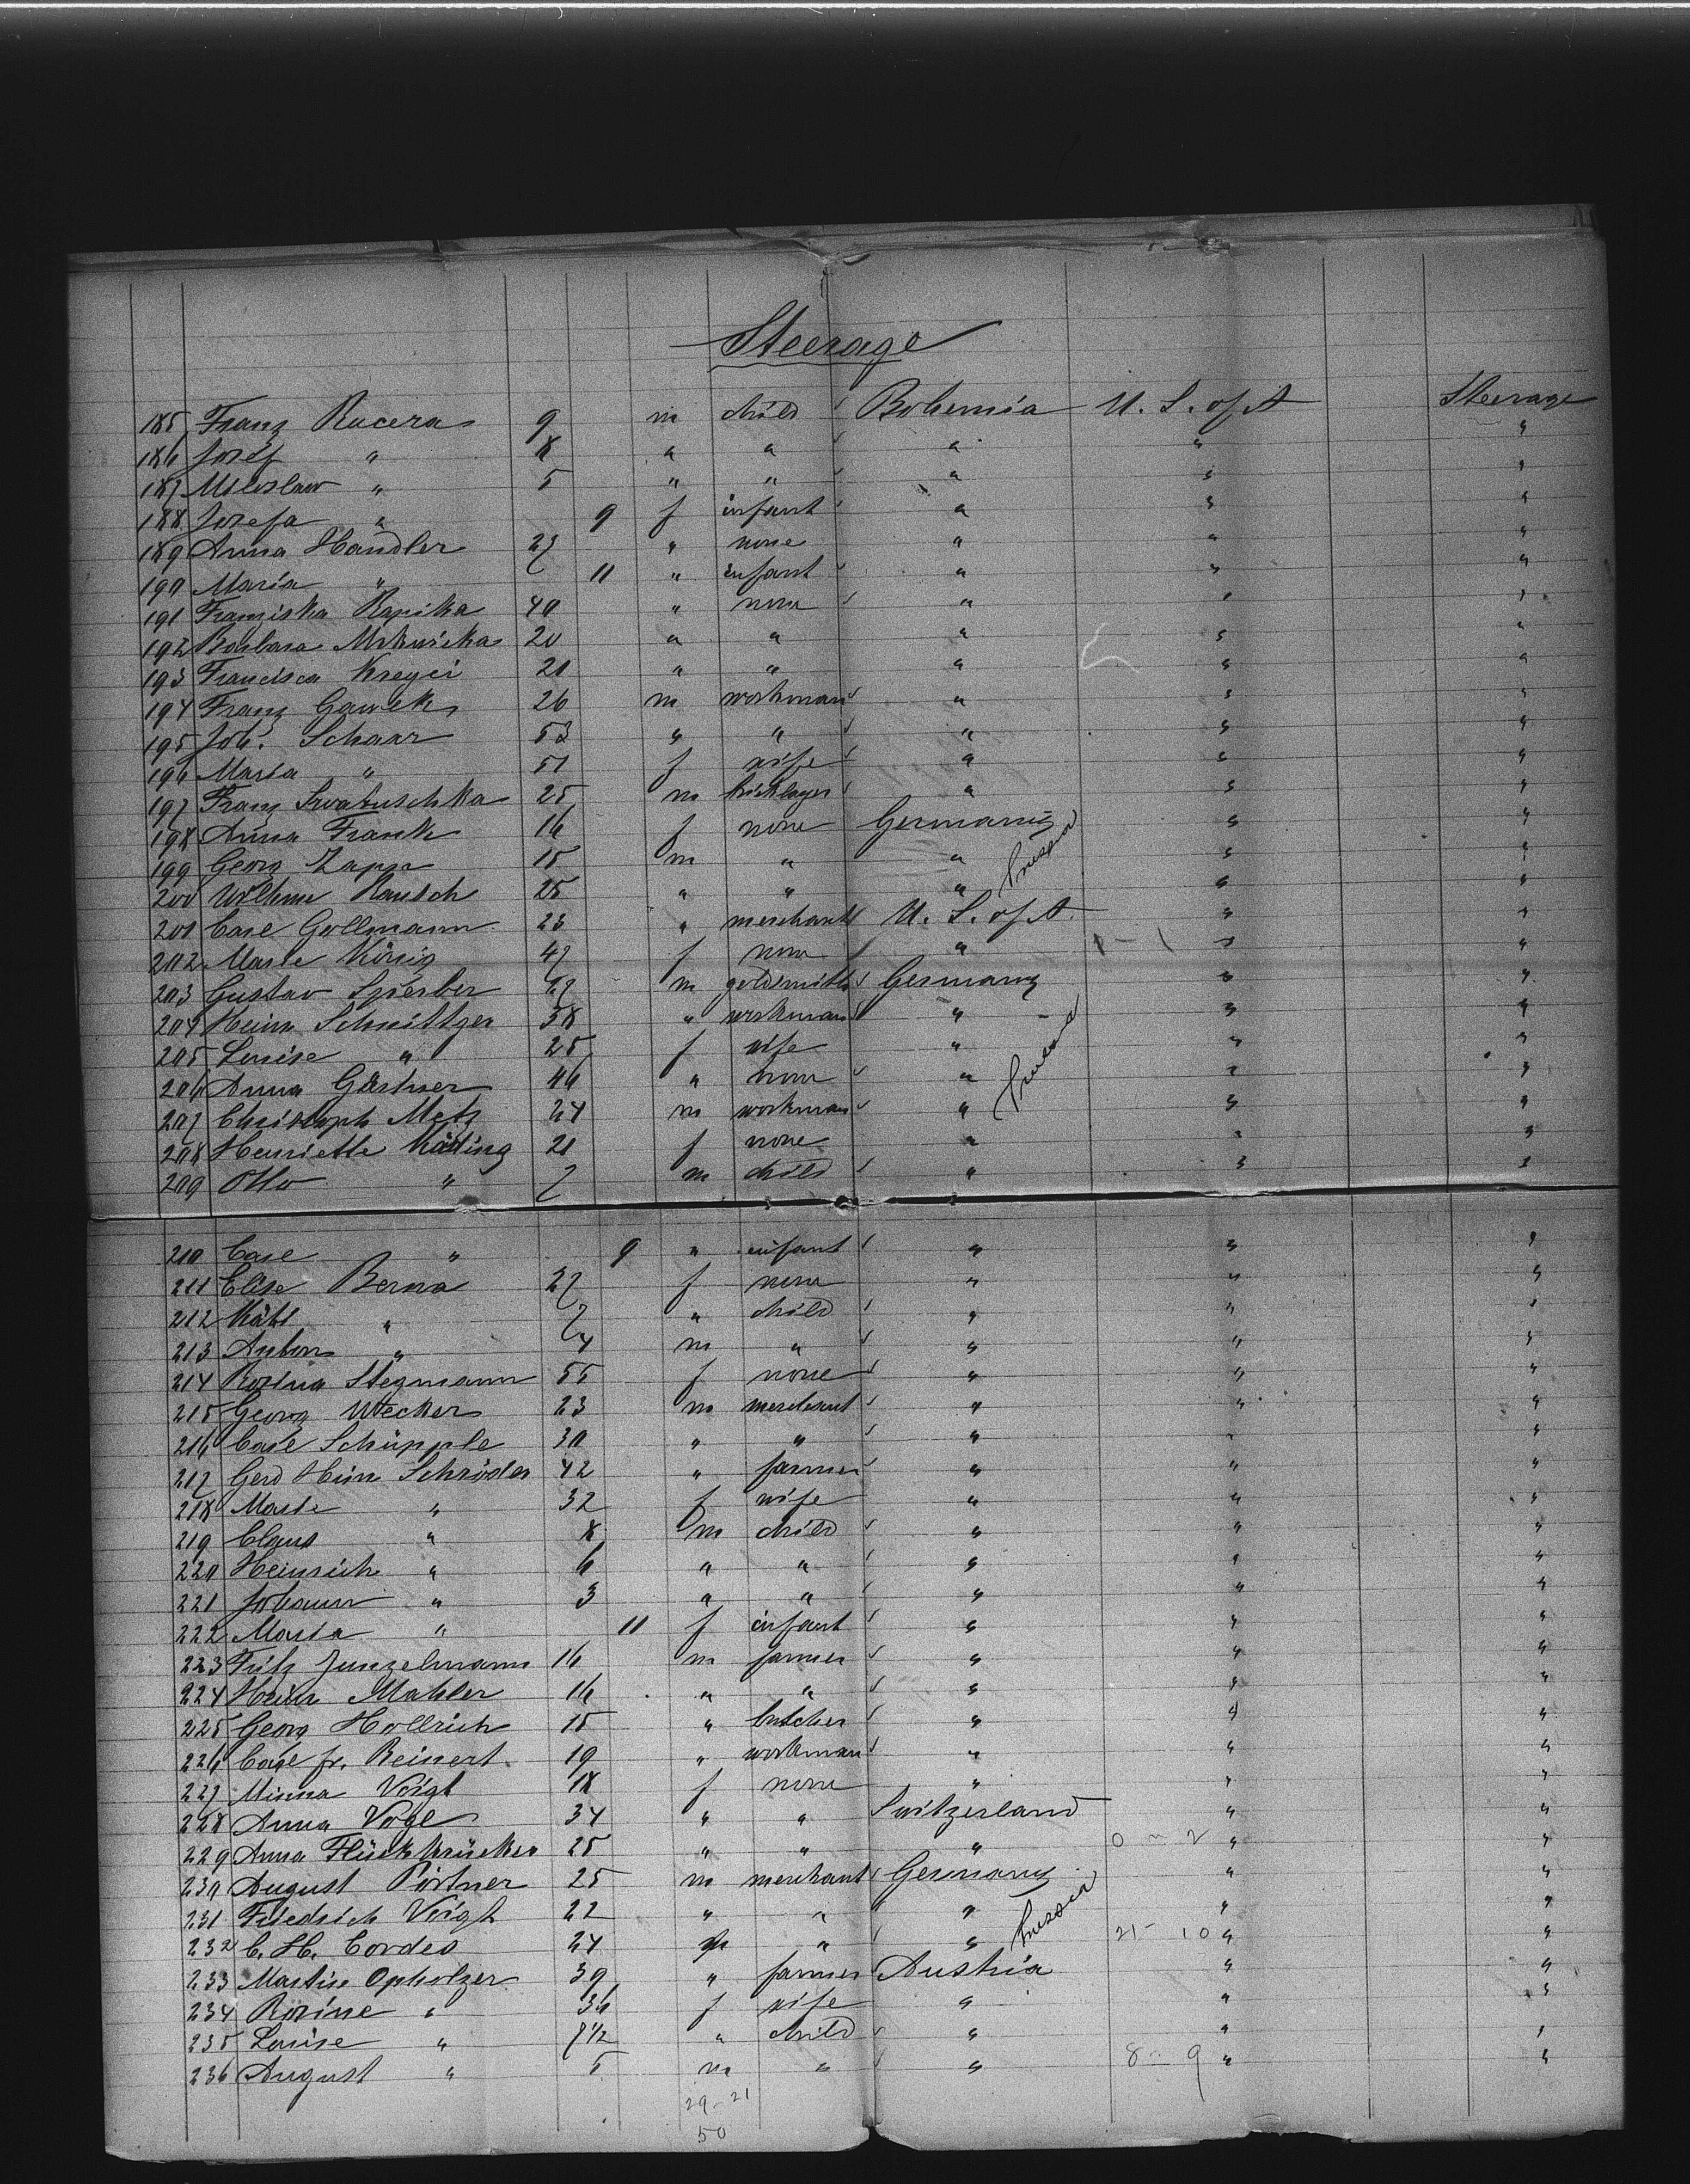 Steerage
185 Franz Kucera 9 m child Bohemia U. S. of A Steerage
186 Josef " 8 " " " " "
187 Miloslaw " 5 " " " " "
188 Josefa " 9 f infant " " "
189 Anna Handler 27 " none " " "
190 Maria " 11 " infant " " "
191 Franziska 40 " none " " "
192 Barbara 20 " " " " "
193 Francisca Kreyci 21 " " " " "
194 Franz 26 m workman " " "
195 Joh. Schaar 53 " " " " "
196 Maria " 51 f wife " " "
197 Franz Swatuschka 25 m bricklayer " " "
198 Anna Frank 16 f none Germany " "
199 Georg Zapp 15 m " " " "
200 Wilhm Rausch 25 " " " Prussia " "
201 Carl Gollmann 23 " merchant U. S. of A. " "
202 Marie König 47 f none " 1 - 1 " "
203 Gustav Sperber 27 m goldsmith Germany " "
204 Heinr Schnittger 38 " workman " " "
205 Louise " 25 f wife " " "
206 Anna Gärtner 46 " none " Prussia " "
207 Christoph Metz 24 m workman " " "
208 Henriette Käding 21 f none " " "
209 Otto " 7 m child " " "
210 Carl " 9 " infant " " "
211 Elise Berna 27 f none " " "
212 Käti " 7 " child " " "
213 Anton " 4 m " " " "
214 Rosina Stegmann 55 f none " " "
215 Georg Wecker 23 m merchant " " "
216 Carl Schüpple 30 " " " " "
217 Gerd Heinr Schröder 42 " farmer " " "
218 Marie " 32 f wife " " "
219 Claus " 8 m child " " "
220 Heinrich " 6 " " " " "
221 Johann " 3 " " " " "
222 Maria " 11 f infant " " "
223 Fritz Junzelmann 16 m farmer " " "
224 Heinr Mahler 16 " " " " "
225 Georg Hollrich 15 " butcher " " "
226 Carl fr. Reinert 19 " workman " " "
227 Minna Voigt 18 f none " " "
228 Anna Vogel 34 " " Switzerland " "
229 Anna Flück 25 " " " 0 - 2 " "
230 August Pörtner 25 m merchant Germany " "
231 Friedrich Voigt 22 " " " " "
232 C. H. Cordes 24 m " " Prussia 21 - 10 " "
233 Martin Opholzer 39 " farmer Austria " "
234 Rosine " 36 f wife " " "
235 Louise " 7 1/2 " child " " "
236 August " 5 m " " 8 - 9 " "
29 - 21
50